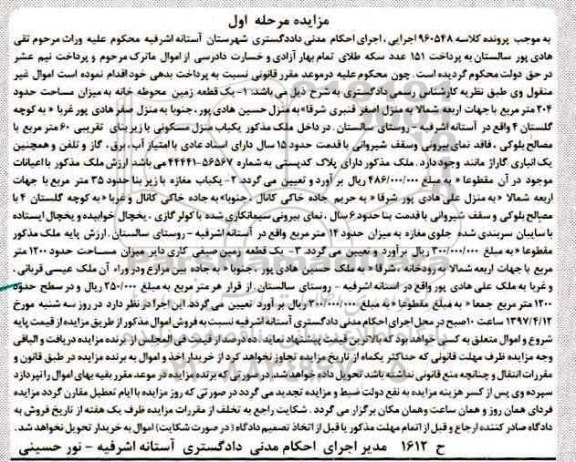 مزایده مرحله اول
به موجب پرونده کلاسه ۹۶۰۵۴۸ اجرایی ، اجرای احکام مدنی دادگستری شهرستان آستانه اشرفیه محکوم علیه وراث مرحوم تقی
هادی پور سالستان به پرداخت ۱۵۱ عدد سکه طلای تمام بهار آزادی و خسارت دادرسی از اموال ماترک مرحوم و پرداخت نیم عشر
در حق دولت محکوم گردیده است . چون محکوم علیه درموعد مقرر قانونی نسبت به پرداخت بدهی خود اقدام ننموده است اموال غیر
منقول وی طبق نظریه کارشناس رسمی دادگستری به شرح ذیل می باشد: ۱- یک قطعه زمین محوطه خانه به میزان مساحت حدود
۲۰۴ متر مربع با جهات اربعه شمالا به منزل اصغر قنبری شرقا» به منزل حسین هادی پور ، جنوبا به منزل صفر هادی پور غربا « به کوچه
گلستان ۴ واقع در آستانه اشرفیه - روستای سالستان . در داخل ملک مذکور یکباب منزل مسکونی با زیر بنای تقریبی ۶۰ متر مربع با
مصالح بلوکی ، فاقد نمای بیرونی وسقف شیروانی با قدمت حدود ۱۵ سال دارای اسناد عادی با امتیاز آب ، برق ، گاز و تلفن و همچنین
یک انباری گاراژ مانند وجود دارد . ملک مذکور دارای پلاک کدپستی به شماره ۵۶۵۶۷-۴۴۴۴۱ می باشد ارزش ملک مذکور با اعیانات
موجود در آن مقطوعا « به مبلغ ۴۸۶/۰۰۰/۰۰۰ ریال بر آورد و تعیین می گردد. ۲- یکباب مغازه با زیر بنا حدود ۳۵ متر مربع با جهات
اربعه شمالا « به منزل علی هادی پور شرقا « به حریم جاده خاکی کانال ، جنوبا» به جاده خاکی کانال و غربا « به کوچه گلستان ۴ با
مصالح بلوکی و سقف شیروانی با قدمت بنا حدود ۶ سال ، نمای بیرونی سیمانکاری شده با کولر گازی . یخچال خوابیده و یخچال ایستاده
با سایبان سربندی شده جلوی مغازه به میزان حدود ۱۴ متر مربع واقع در آستانه اشرفیه - روستای سالستان . ارزش پایه ملک مذکور
مقطوعا « به مبلغ ۳۰۰/۰۰۰/۰۰۰ ریال بر آورد و تعیین می گردد. ۳- یک قطعه زمین صیفی کاری دایر میزان مساحت حدود ۱۲۰۰ متر
مربع با جهات اربعه شمالا به رودخانه ، شرقا « به ملک حسین هادی پور ، جنوبا « به جاده بین مزارع ودر وراء آن ملک عیسی قربانی ،
و غربا به ملک علی هادی پور واقع در آستانه اشرفیه - روستای سالستان . از قرار هر متر مربع به مبلغ ۲۵۰/۰۰۰ ریال و در سطح حدود
۱۲۰۰ متر مربع جمعا « به مبلغ مقطوعا « به مبلغ ۳۰۰/۰۰۰/۰۰۰ ریال بر آورد تعیین می گردد. این اجرا در نظر دارد در روز سه شنبه مورخ
۱۳۹۷/۴/۱۲ ساعت ۱۰صبح در محل اجرای احکام مدنی دادگستری آستانه اشرفیه نسبت به فروش اموال مذکور از طریق مزایده از قیمت پایه
شروع و اموال متعلق به کسی خواهد بود که بالاترین قیمت پیشنهاد نماید. ده درصد از قیمت فی المجلس از برنده مزایده دریافت و الباقی
وجه مزایده ظرف مهلت قانونی که حداکثر یکماه از تاریخ مزایده تجاوز نخواهد کرد از خریدار اخذ و اموال به برنده مزایده در طبق قانون و
مقررات انتقال و چنانچه منع قانونی نداشته باشد تحویل داده خواهد شد. در صورتی که برنده مزایده در موعد مقرر بقیه بهای اموال را نپردازد
سپرده وی پس از کسر هزینه مزایده به نفع دولت ضبط و مزایده تجدید می گردد در صورتی که روز مزایده با ایام تعطیل مقارن گردد مزایده
فردای همان روز و همان ساعت وهمان مکان برگزار می گردد . شکایت راجع به تخلف از مقررات مزایده ظرف یک هفته از تاریخ فروش به
دادگاه صادر کننده ارجاع و قبل از اتمام مهلت مذکور یا قبل از اتخاذ تصمیم دادگاه ( در صورت شکایت) اموال به خریدار تحویل نخواهد شد .
ح ۱۶۱۲ مدیر اجرای احکام مدنی دادگستری آستانه اشرفیه - نور حسینی